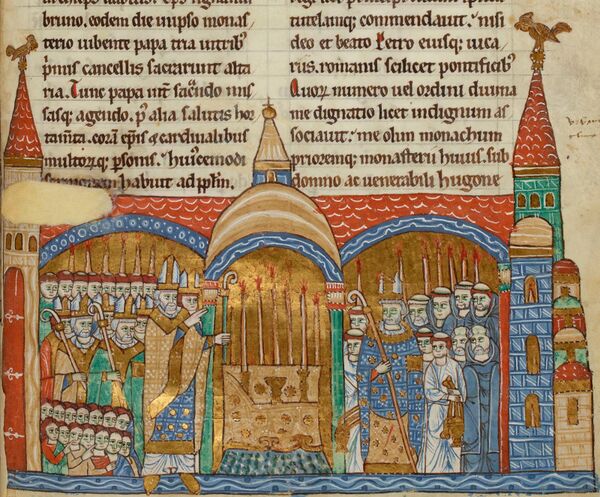 bruno. eodem die in ipso monas
terio iubente papa tria in tribus
p̄mis cancellis sacrarunt alta
ria. Tunc papa int̄ sac̄ndū mis
sasq; agendū. p̄ alia salutis hor
tam̄ta. corā ep̄is & cardinalibus
multorq; p̄sonis. huiscemodi
sermonem habuit ad pp̄lm.
tutelamq; commendauit. nisi
deo et beato Petro eiusq; uica
riis. romanis scilicet pontificib;
Quor̄ numero uel ordini diuina
me dignatio licet indignum as
sociauit. me olim monachum
prioremq; monasterii huius. sub
domno ac uenerabili hugone